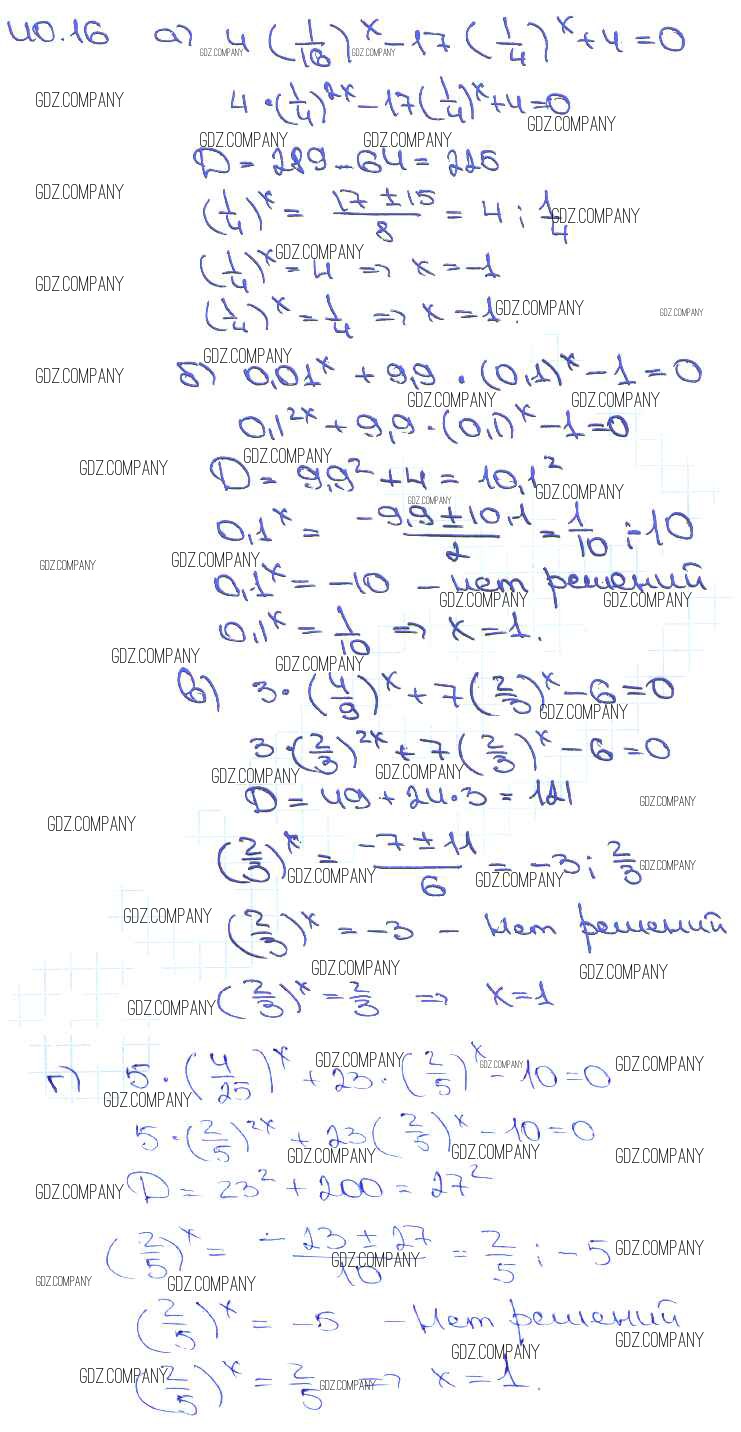 40.16 а) 4 (1/16)^x − 17 (1/4)^x + 4 = 0
4 · (1/4)^2x − 17 (1/4)^x + 4 = 0
D = 289 − 64 = 225
(1/4)^x = (17 ± 15)/8 = 4 ; 1/4
(1/4)^x = 4 => x = −1
(1/4)^x = 1/4 => x = 1.
б) 0,01^x + 9,9 · (0,1)^x − 1 = 0
0,1^2x + 9,9 · (0,1)^x − 1 = 0
D = 9,9² + 4 = 10,1²
0,1^x = (−9,9 ± 10,1)/2 = 1/10 ; −10
0,1^x = −10 – нет решений
0,1^x = 1/10 => x = 1.
в) 3 · (4/9)^x + 7 (2/3)^x − 6 = 0
3 · (2/3)^2x + 7 (2/3)^x − 6 = 0
D = 49 + 24 · 3 = 121
(2/3)^x = (−7 ± 11)/6 = −3 ; 2/3
(2/3)^x = −3 – нет решений
(2/3)^x = 2/3 => x = 1
г) 5 · (4/25)^x + 23 · (2/5)^x − 10 = 0
5 · (2/5)^2x + 23 (2/5)^x − 10 = 0
D = 23² + 200 = 27²
(2/5)^x = (−23 ± 27)/10 = 2/5 ; −5
(2/5)^x = −5 – нет решений
(2/5)^x = 2/5 => x = 1.
GDZ.COMPANY